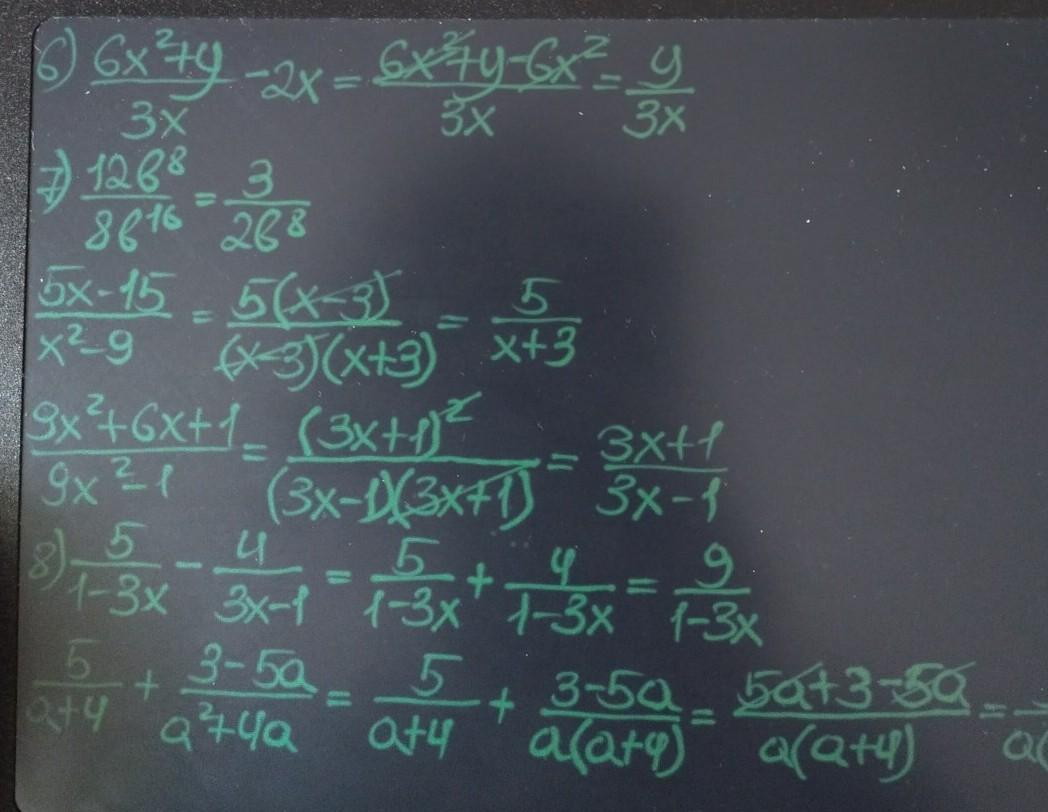 6) (6x²+y)/(3x) - 2x = (6x²+y-6x²)/(3x) = y/(3x)
7) (12b⁸)/(8b¹⁶) = 3/(2b⁸)
(5x-15)/(x²-9) = (5(x-3))/((x-3)(x+3)) = 5/(x+3)
(9x²+6x+1)/(9x²-1) = (3x+1)²/((3x-1)(3x+1)) = (3x+1)/(3x-1)
8) 5/(1-3x) - 4/(3x-1) = 5/(1-3x) + 4/(1-3x) = 9/(1-3x)
5/(a+4) + (3-5a)/(a²+4a) = 5/(a+4) + (3-5a)/(a(a+4)) = (5a+3-5a)/(a(a+4)) =